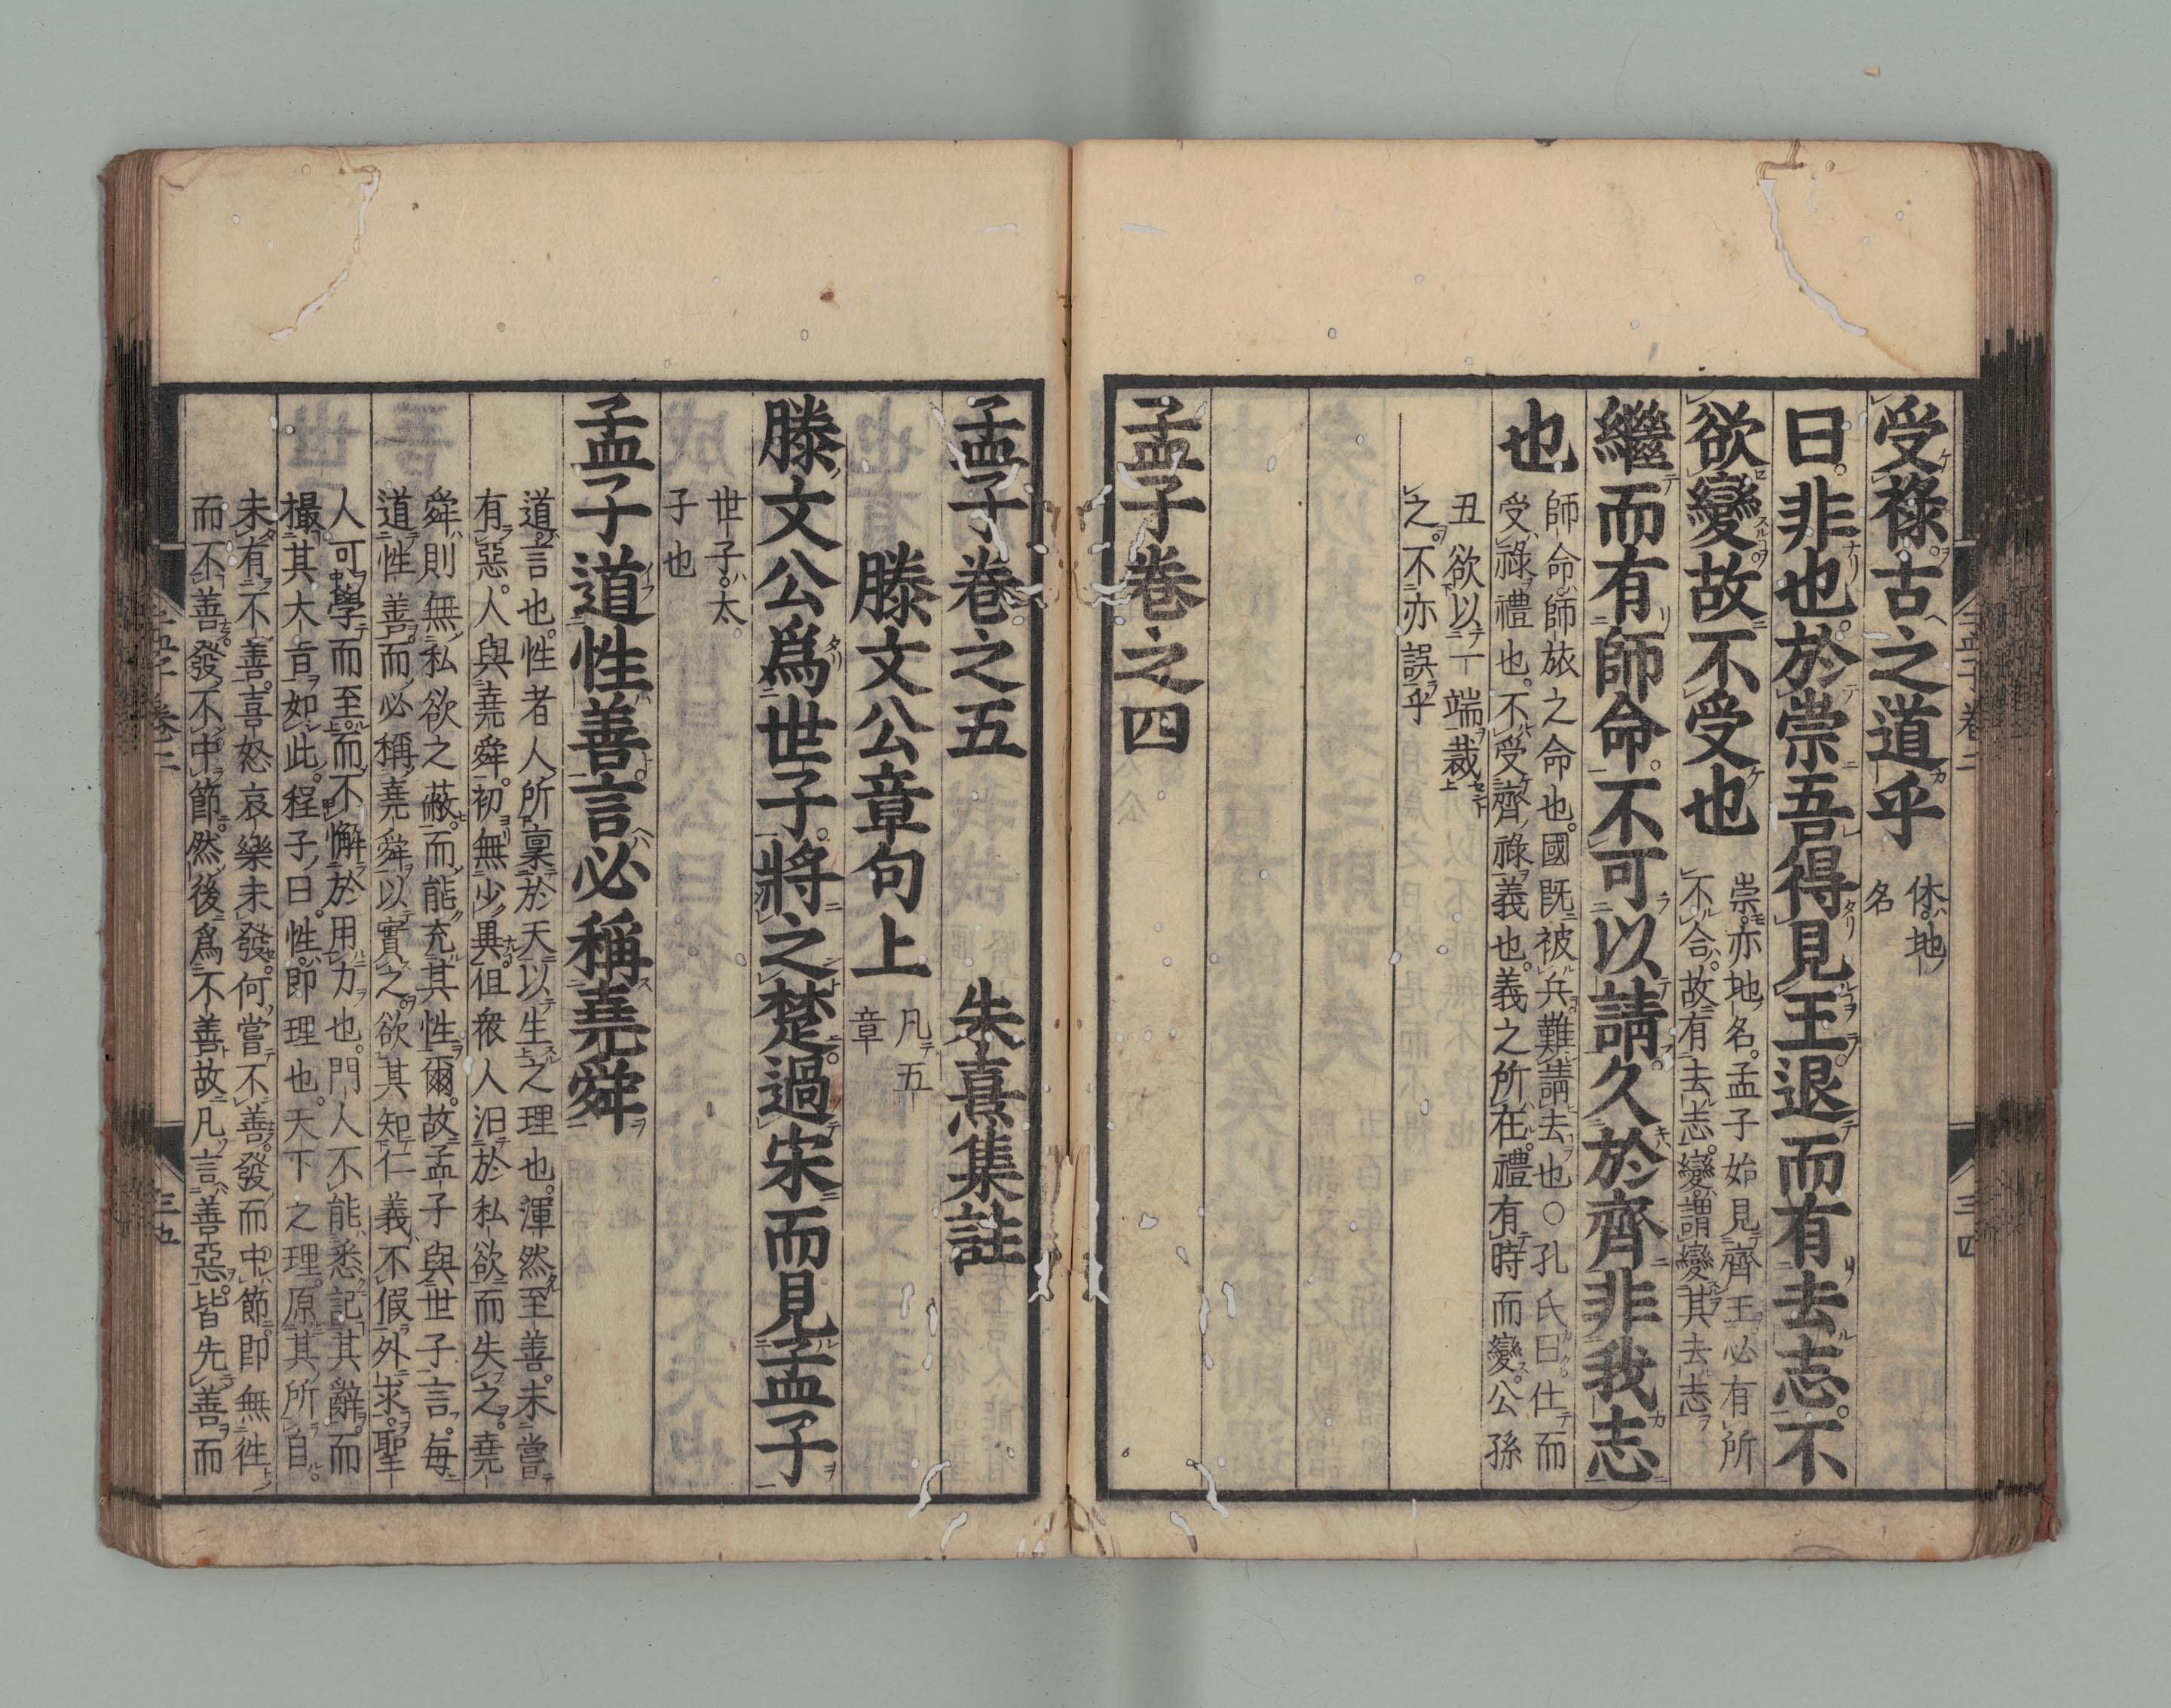 受祿古之道乎
休地
名
曰非也於崇吾得見王退而有去志不
欲變故不受也
崇亦地名孟子始見齊王必有所
不合故有去志變謂變其去志
繼而有師命不可以請久於齊非我志
也
師命師旅之命也國既被兵難請去也○孔氏曰仕而
受祿禮也不受齊祿義也義之所在禮有時而變公孫
丑欲以一端裁
之不亦誤乎
孟子卷之四
孟子卷之五 朱熹集註
滕文公章句上
凡五
章
滕文公爲世子將之楚過宋而見孟子
世子太
子也
孟子道性善言必稱堯舜
道言也性者人所稟於天以生之理也渾然至善未嘗
有惡人與堯舜初無少異但衆人汨於私欲而失之堯
舜則無私欲之蔽而能充其性爾故孟子與世子言每
道性善而必稱堯舜以實之欲其知仁義不假外求聖
人可學而至而不懈於用力也門人不能悉記其辭而
撮其大旨如此程子曰性即理也天下之理原其所自
未有不善喜怒哀樂未發何嘗不善發而中節即無往
而不善發不中節然後爲不善故凡言善惡皆先善而